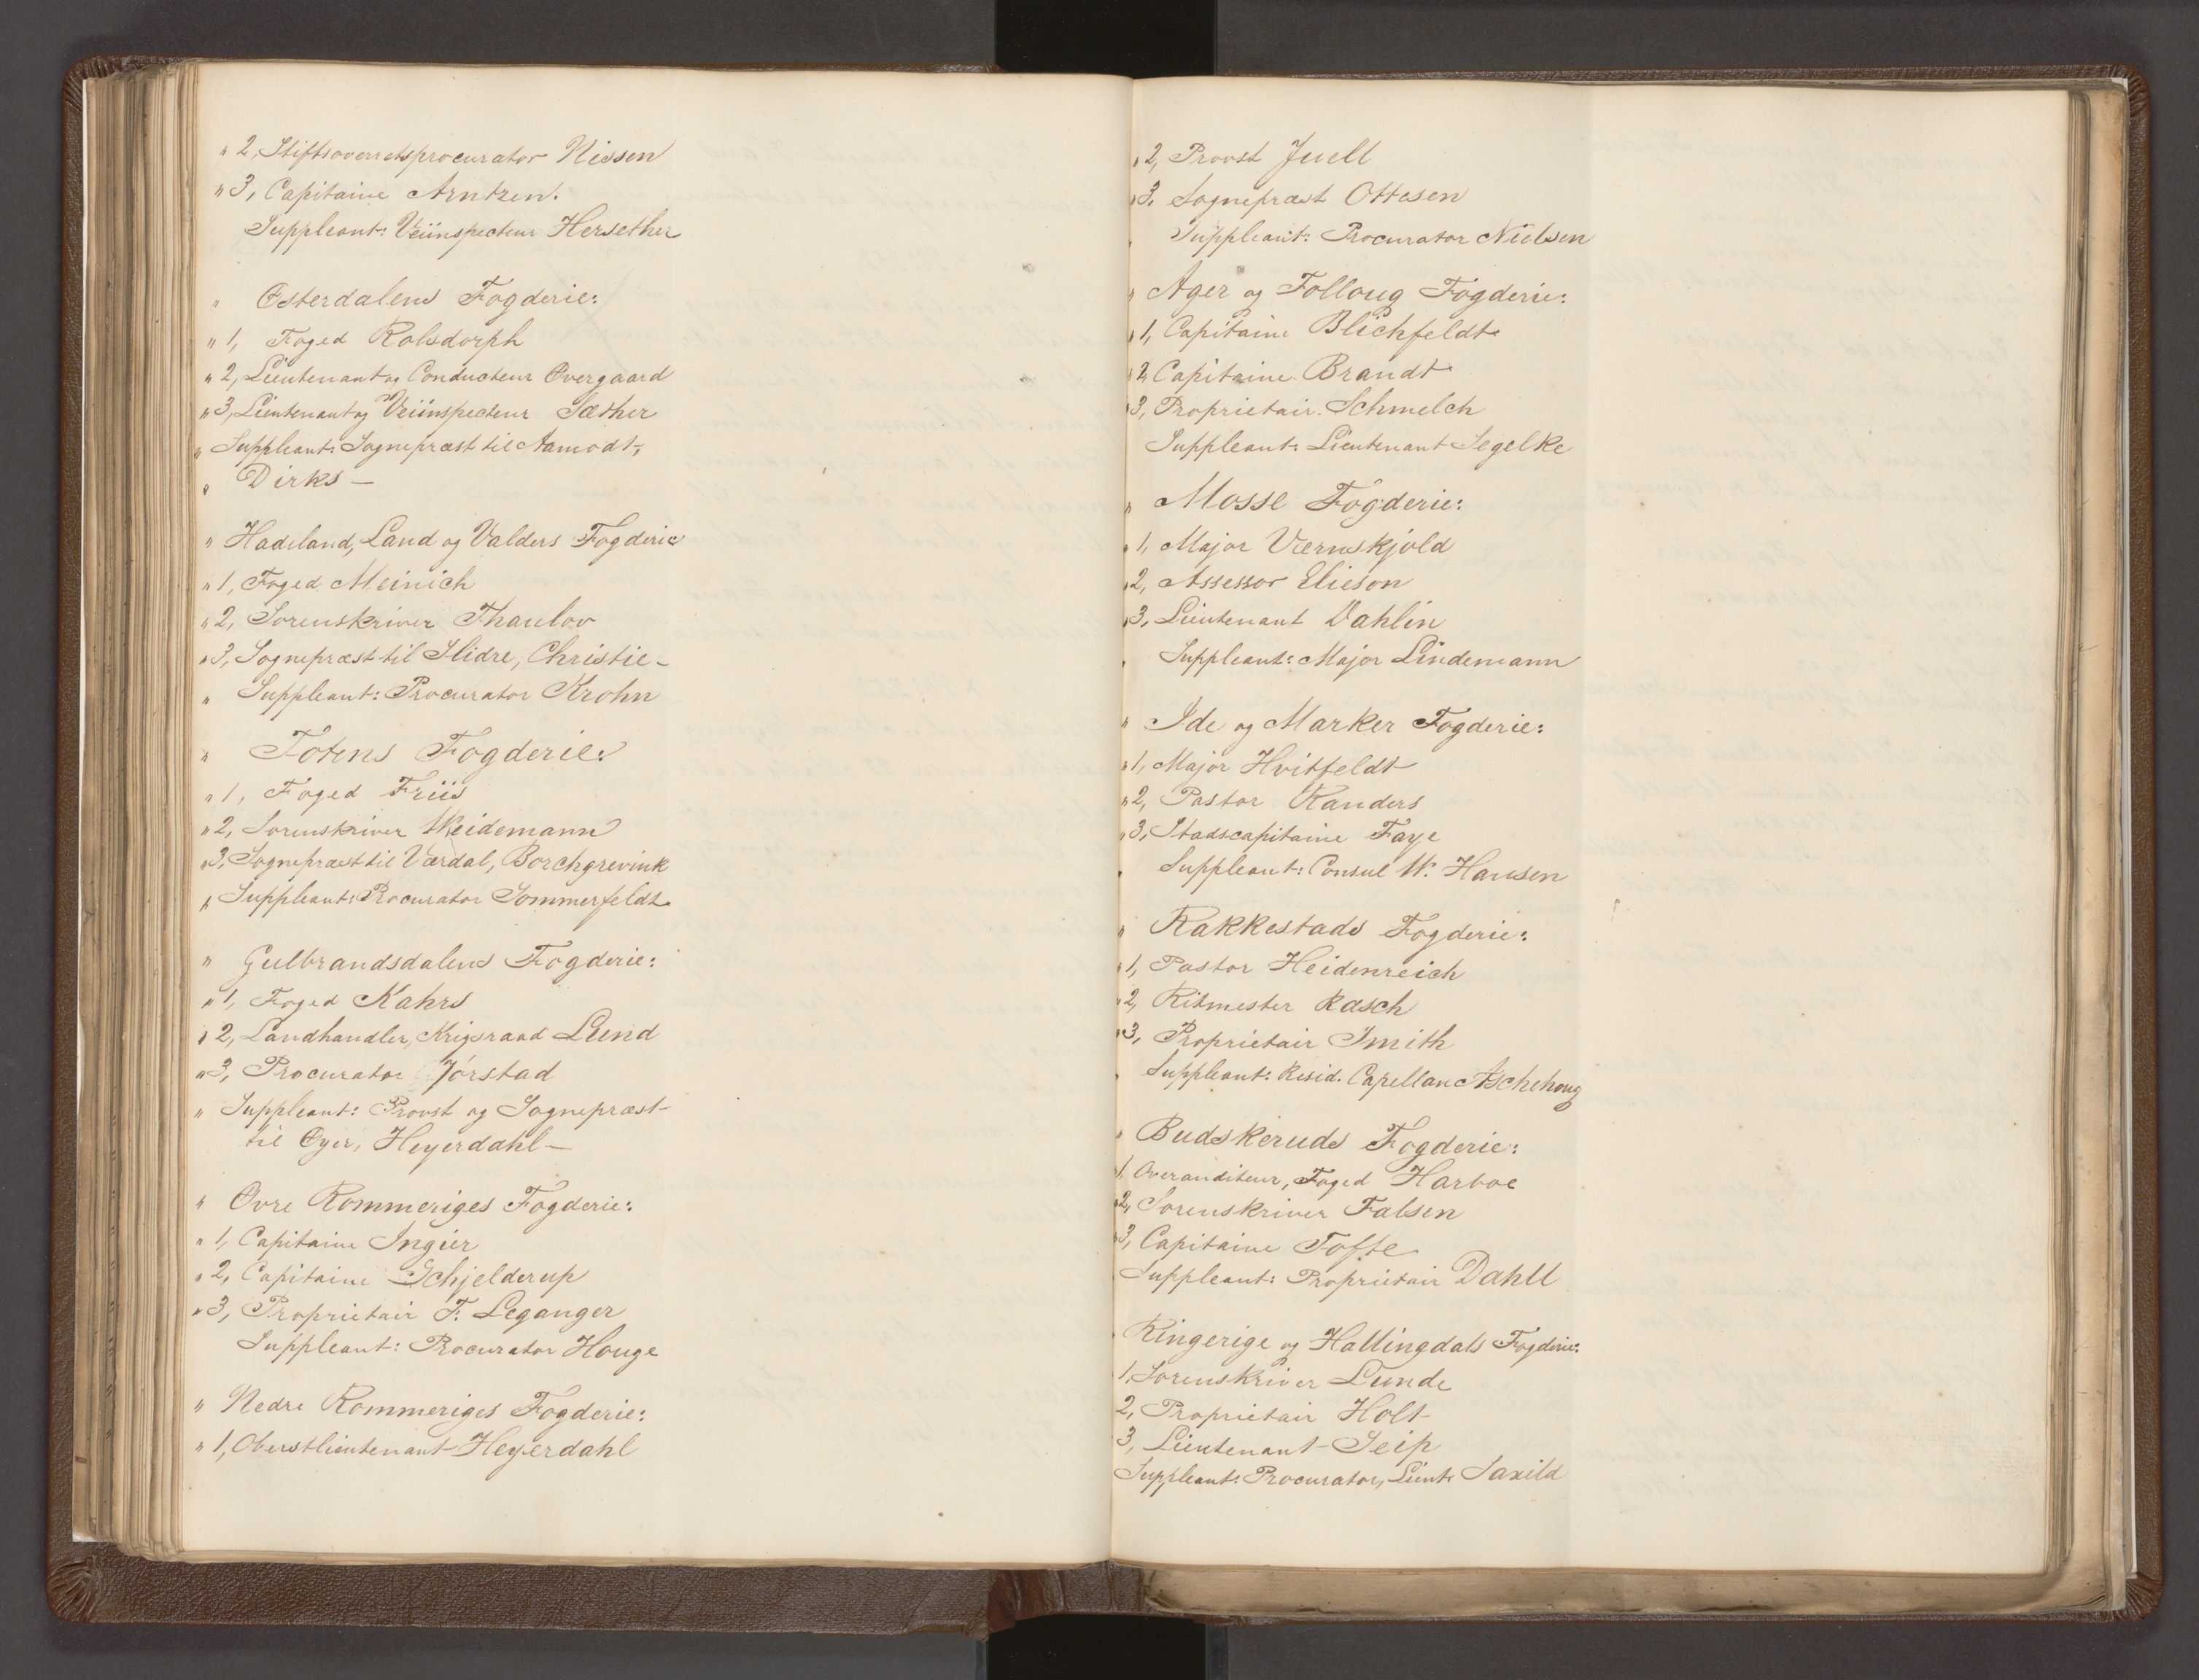 " 2, Stiftsoverretsprocurator Nissen
" 3, Capitaine Arntzen.
Suppleant: Veiinspecteur Hersether
" Østerdalens Fogderie:
" 1, Foged Rolsdorph
" 2, Lieutenant og Conducteur Overgaard
" 3, Lieutenant og Veiinspecteur Sæther
" Suppleant: Sognepræst til Aamodt,
" Dirks —
" Hadeland, Land og Valders Fogderie
" 1, Foged Meinich
" 2, Sorenskriver Thaulov
" 3, Sognepræst til Slidre, Christie —
" Suppleant: Procurator Krohn
" Totens Fogderie:
" 1, Foged Friis
" 2, Sorenskriver Weidemann
" 3, Sognepræst til Værdal, Borchgrevink
" Suppleant: Procurator Sommerfeldt
" Gulbrandsdalens Fogderie:
" 1, Foged Kahrs
" 2, Landhandler, Krigsraad Lund
" 3, Procurator Jörstad
" Suppleant: Provst og Sognepræst
til Øyer, Heyerdahl —
" Øvre Rommeriges Fogderie:
" 1, Capitaine Ingier
" 2, Capitaine Schjelderup
" 3, Proprietair F. Leganger
Suppleant: Procurator Houge
" Nedre Rommeriges Fogderie:
" 1, Oberstlieutenant Heyerdahl
" 2, Provst Juell
" 3, Sognepræst Ottesen
" Suppleant: Procurator Nielsen
" Ager og Folloug Fogderie:
" 1, Capitaine Blichfeldt
" 2, Capitaine Brandt
" 3, Proprietair Schmelch
Suppleant: Lieutenant Segelke
" Mosse Fogderie:
" 1, Major Værnskjold
" 2, Assessor Elieson
" 3, Lieutenant Dahlin
" Suppleant: Major Lindemann
" Ide og Marker Fogderie:
" 1, Major Hvitfeldt
" 2, Pastor Randers
" 3, Stadscapitaine Faye
" Suppleant: Consul W. Hansen
" Rakkestads Fogderie:
" 1, Pastor Heidenreich
" 2, Ritmester Rasch
" 3, Proprietair Smith
" Suppleant: Resid. Capellan Aschehoug
" Budskeruds Fogderie:
" 1, Overauditeur, Foged Harboe
" 2, Sorenskriver Falsen
" 3, Capitaine Tofte
Suppleant: Proprietair Dahll
" Ringerige og Hallingdals Fogderie:
1, Sorenskriver Lunde
2, Proprietair Holt
3, Lieutenant Seip
Suppleant: Procurator, Lieut: Saxild